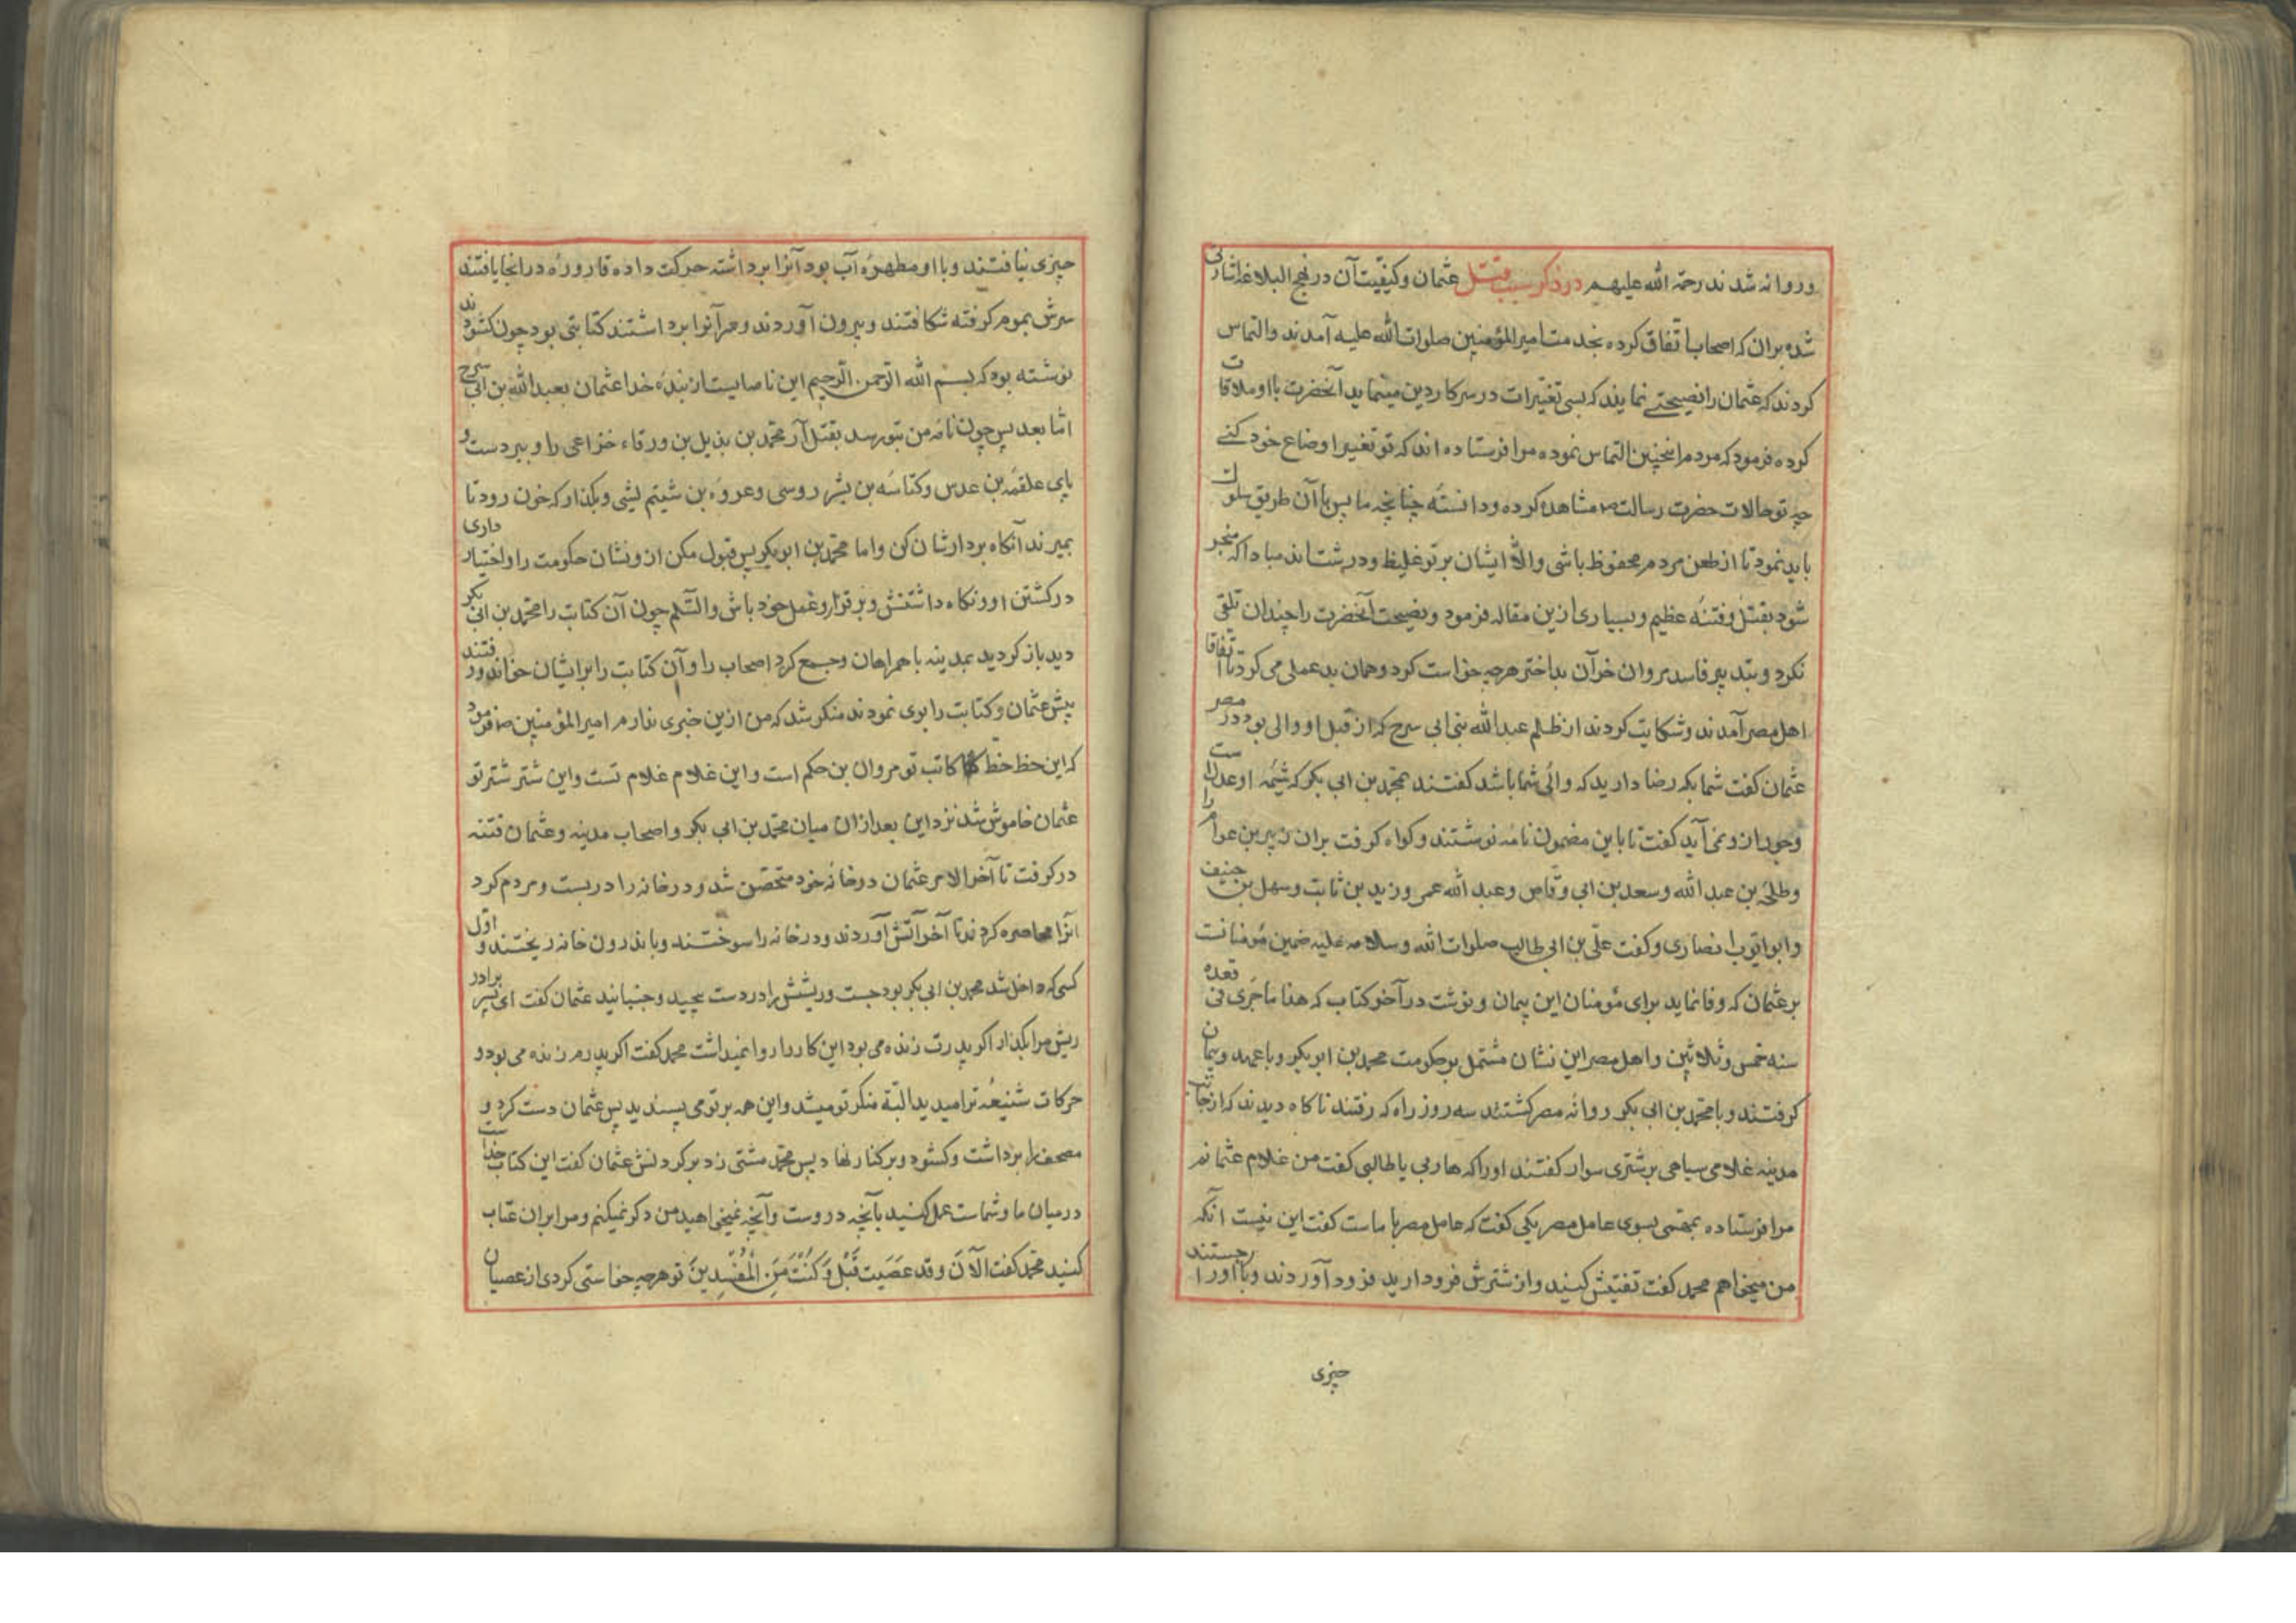 وروانه شدند رحمة الله عليهم در ذكر سبب قتل عثمان وكيفيت آن در نهج البلاغه اشارتى
شده بران كه اصحاب اتفاق كرده بخدمت امير المؤمنين صلوات الله عليه آمدند والتماس
كردند كه عثمان را نصيحتى نمايند كه بسى تغييرات در سركار دين مينمايد آنحضرت با او ملاقات
كرده فرمود كه مردم اينچنين التماس نموده مرا فرستاده اند كه تو تغيير اوضاع خود كنى
چه تو حالات حضرت رسالت ص مشاهده كرده و دانسته چنانچه ما پس با آن طريق سلوك
بايد نمود تا از طعن مردم محفوظ باشى والا ايشان بر تو غليظ و درشت اند مبادا كه منجر
شود بقتل وفتنه عظيم وبسيارى ازين مقاله فرمود ونصيحت آنحضرت را چندان تلقى
نكرد وبتدبير فاسد مروان خرآن بداختر هرچه خواست كرد وهمان بدعملى مى كرد تا اتفاقا
اهل مصر آمدند وشكايت كردند از ظلم عبد الله بن ابى سرح كه از قبل او والى بود در مصر
عثمان گفت شما بكه رضا داريد كه والى شما باشد گفتند بمحمد بن ابى بكر كه شيمه او عدالتست
وجور ازو نمى آيد گفت تا باين مضمون نامه نوشتند وكواه گرفت بران زبير بن عوام را
وطلحه بن عبد الله وسعد بن ابى وقاص وعبد الله عمر وزيد بن ثابت وسهل بن حنيف
وابو ايوب انصارى وگفت على بن ابى طالب صلوات الله وسلامه عليه ضمين مؤمنانست
بر عثمان كه وفا نمايد براى مؤمنان اين پيمان ونوشت در آخر كتاب كه هذا ما جرى فى قعده
سنه خمس وثلاثين واهل مصر اين نشان مشتمل بر حكومت محمد بن ابو بكر وبا عهد وپيمان
گرفتند وبا محمد بن ابى بكر روانه مصر گشتند سه روز راه كه رفتند ناگاه ديدند كه از جانب
مدينه غلامى سياهى بر شترى سوار گفتند او را كه هاربى يا طالبى گفت من غلام عثمانم
مرا فرستاده بمهمى بسوى عامل مصر يكى گفت كه عامل مصر با ماست گفت اين نيست آنكه
من ميخواهم محمد گفت تفتيش كنيد واز شترش فرود اريد فرود آوردند وبار او را جستند
چيزى
چيزى نيافتند وبا او مطهره آب بود آنرا برداشته حركت داده قاروره در انجا يافتند
سرش بموم گرفته شكافتند وبيرون آوردند ومهر آنرا برداشتند كتابتى بود چون كشودند
نوشته بود كه بسم الله الرحمن الرحيم اين نامه ايست از بنده خدا عثمان بعبد الله بن ابى سرح
اما بعد پس چون نامه من بتو رسد بقتل آر محمد بن بذيل بن ورقاء خزاعى را وببر دست و
پاى علقمه بن عدس وكنانه بن بشر روسى وعروه بن شيتم ليثى وبگذار كه خون رود تا
بميرند آنگاه بر دارشان كن واما محمد بن ابو بكر پس قبول مكن ازو نشان حكومت را واختيار دارى
در كشتن او ونگاه داشتنش وبرقرار وعمل خود باش والسلم چون آن كتابت را محمد بن ابى بكر
ديد باز گرديد بمدينه با همراهان وجمع كرد اصحاب را وآن كتابت را برايشان خواند ورفتند
پيش عثمان وكتابت را بوى نمودند منكر شد كه من ازين خبرى ندارم امير المؤمنين ص فرمود
كه اين خط خط كاتب تو مروان بن حكم است واين غلام غلام تست واين شتر شتر تو
عثمان خاموش شد نزد اين بعد ازان ميان محمد بن ابى بكر واصحاب مدينه وعثمان فتنه
درگرفت تا آخر الامر عثمان در خانه خود متحصن شد ودر خانه را دربست ومردم گرد
انرا محاصره كردند تا آخر آتش آوردند ودر خانه را سوختند وباندرون خانه ريختند و اول
كسى كه داخل شد محمد بن ابى بكر بود جست وريشش را در دست پيچيد وجنبانيد عثمان گفت اى پسر برادر
ريش مرا بگذار اگر پدرت زنده مى بود اين كار را روا نميداشت محمد گفت اگر پدرم زنده مى بود و
حركات شنيعه ترا ميديد البته منكر تو ميشد واين همه بر تو مى پسنديد پس عثمان دست كرد و
مصحف را برداشت وكشود وبر كنار نهاد پس محمد مشتى زد بر گردنش عثمان گفت اين كتاب خداست
در ميان ما وشماست عمل كنيد بآنچه دروست وآنچه نميخواهيد من دگر نميكنم ومرا بران عتاب
كنيد محمد گفت الآن وقد عصيت قبل وكنت من المفسدين تو هرچه خواستى كردى از عصيان